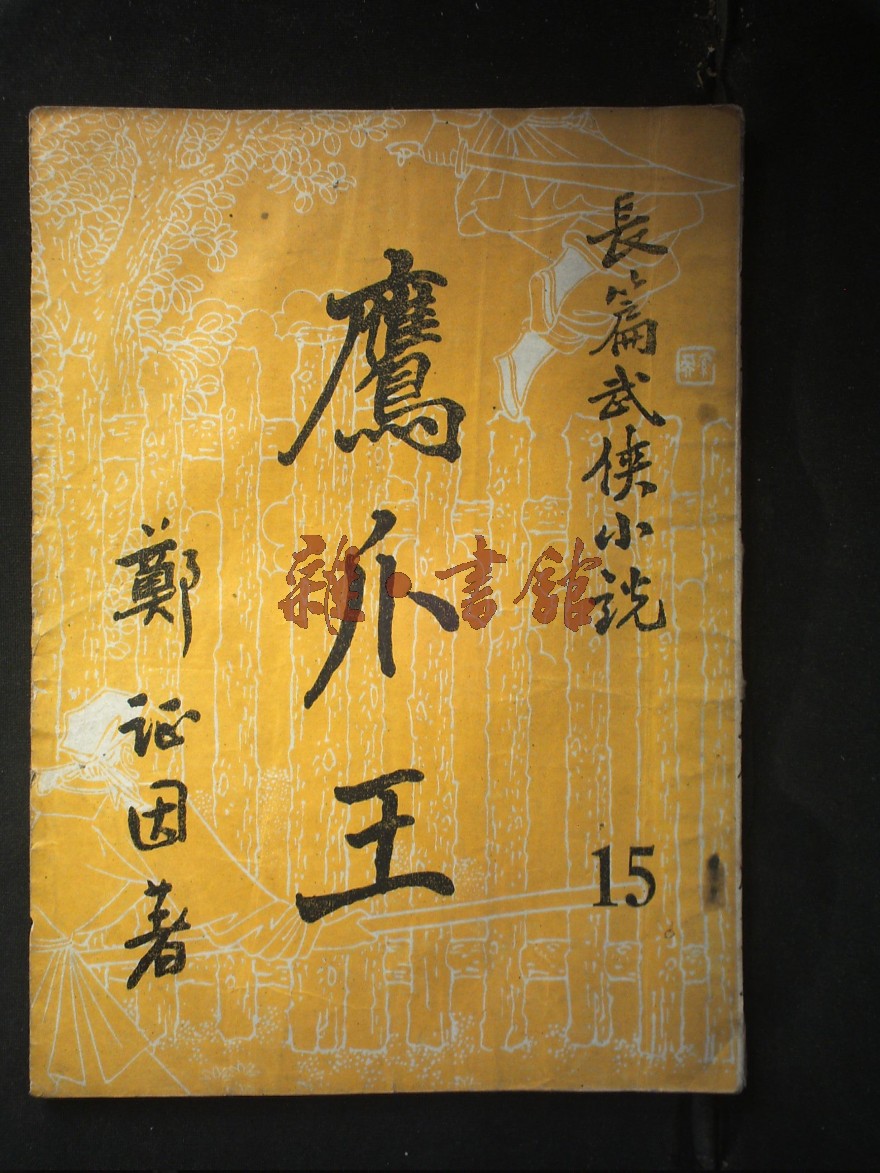 長篇武俠小説
鷹爪王
15
鄭证因著
雜·書館